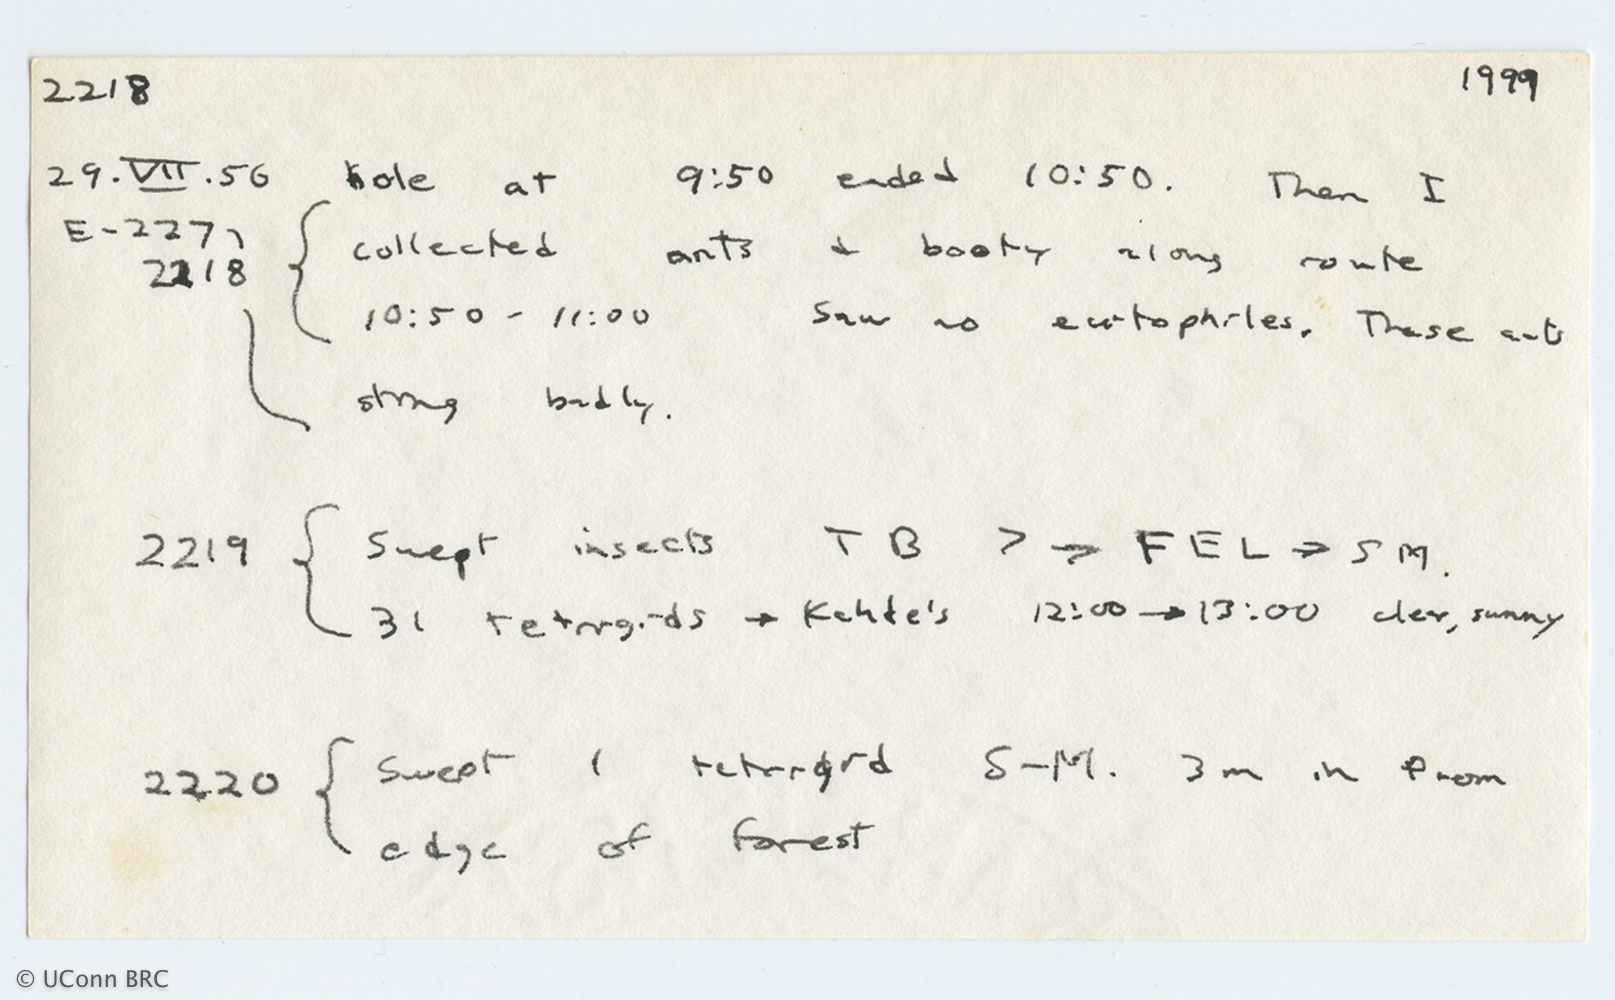 2218 1999
29.VII.56 hole at 9:50 ended 10:50. Then I
E-227,
2218 collected ants & booty along route
10:50 - 11:00 Saw no ectophiles. These ants
sting badly.
2219 Swept insects TB > → FEL → SM.
31 tetrigids → 12:00 → 13:00 cler, sunny
2220 Swept 1 tetrigid S-M. 3m in from
edge of forest
© UConn BRC